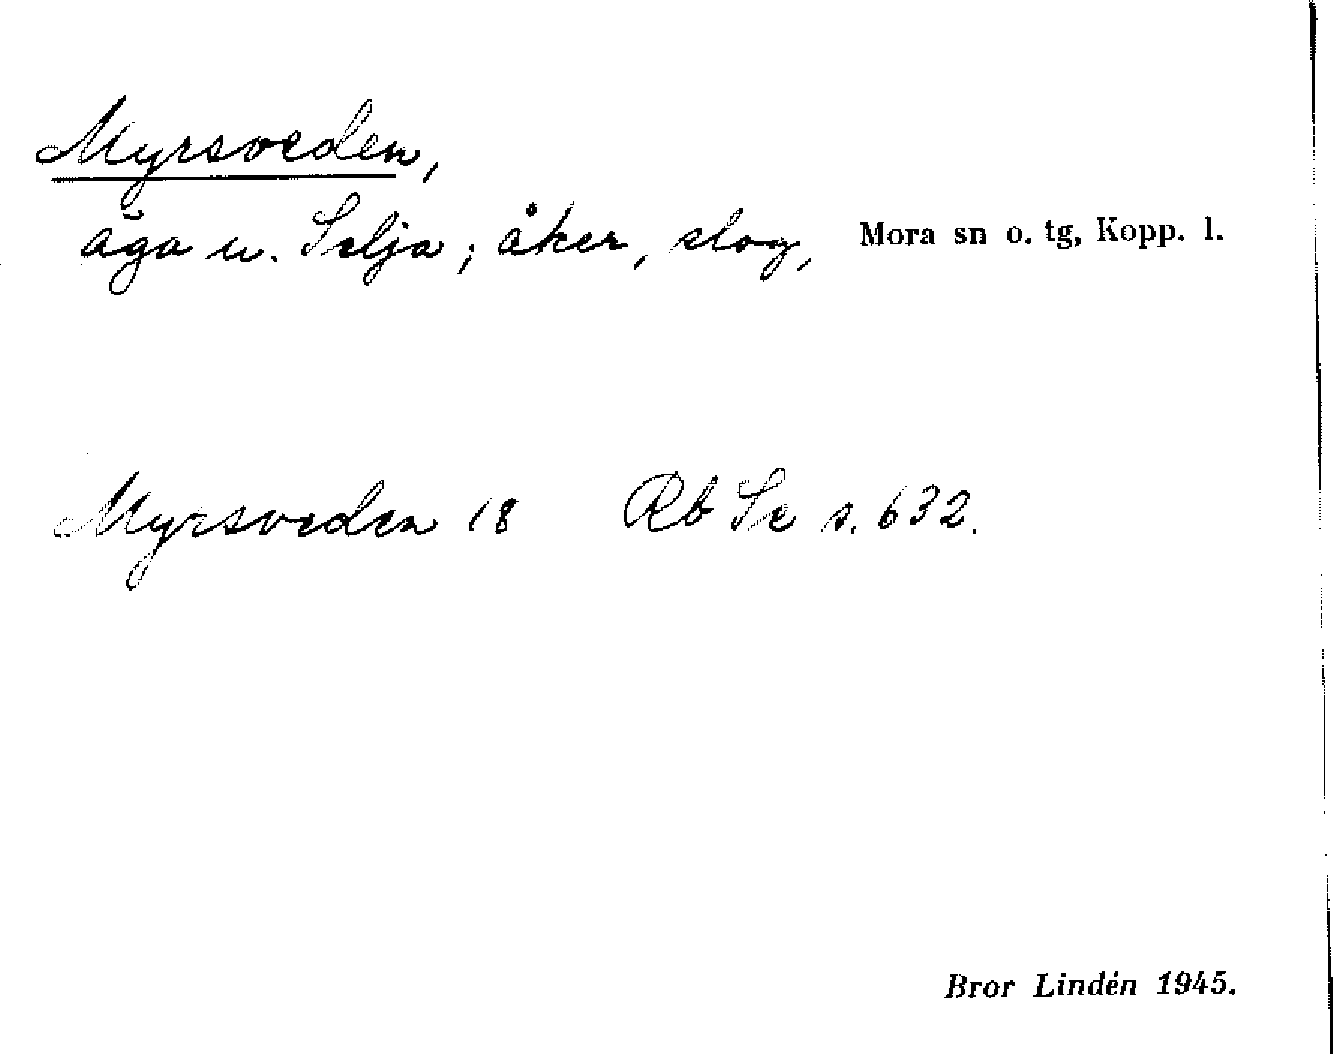 Myrsveden,
äga u. Selja; åker, slog, Mora sn o. tg, Kopp. l.
Myrsveden 18 Rb Se s. 632.
Bror Lindén 1945.